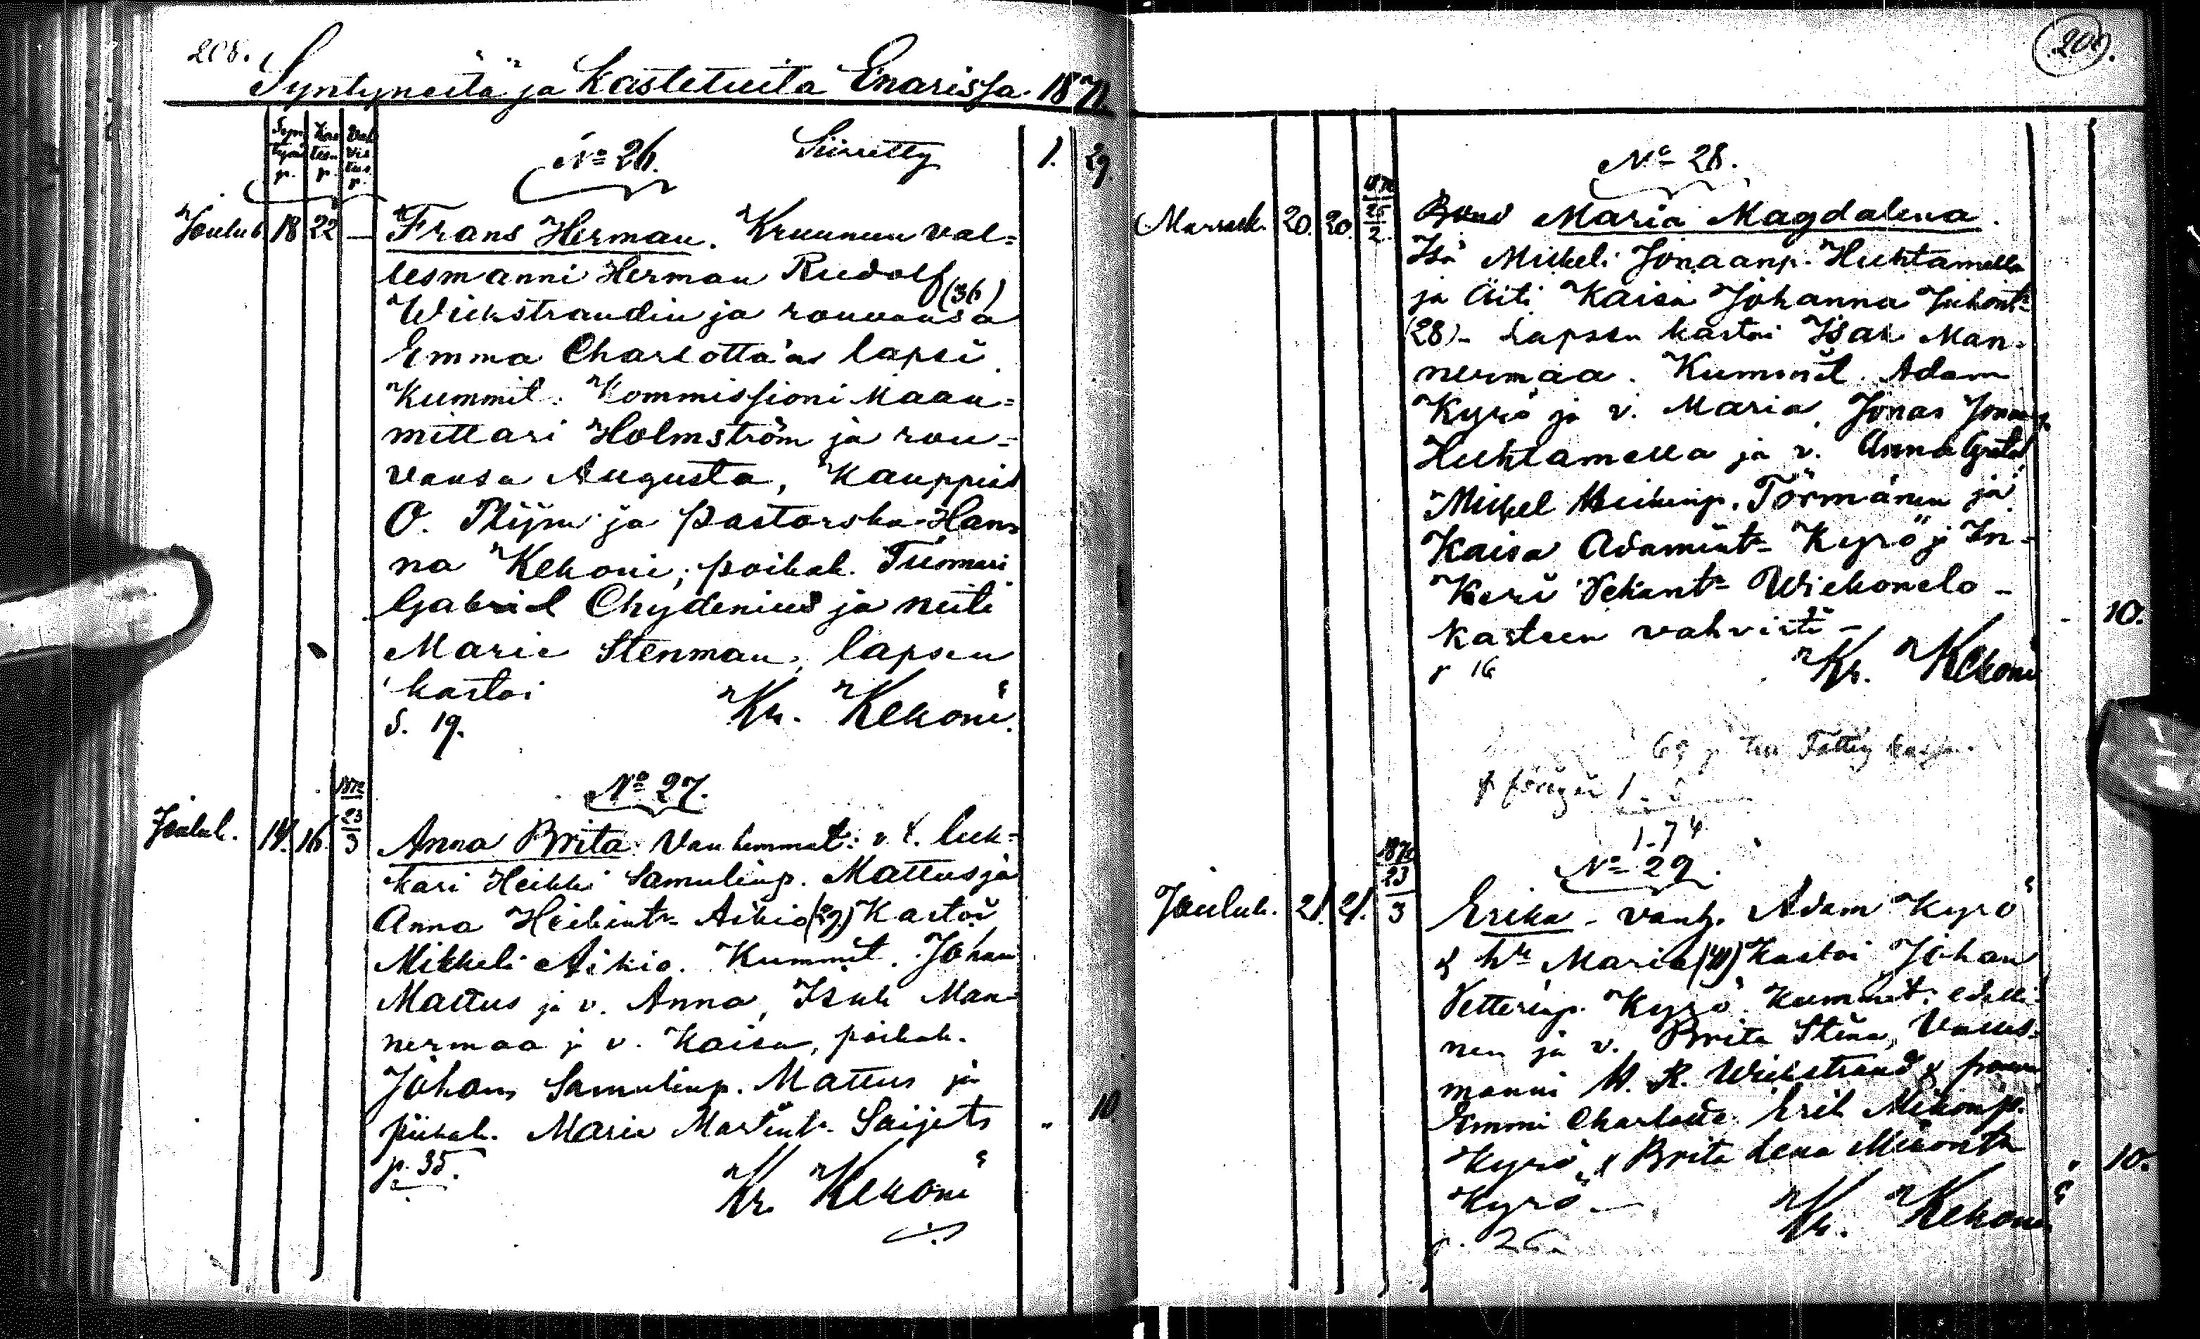 208.
Syntyneitä ja Kastetuita Enarissa. 1871
Syn
tymä
p.
Kas
teen
p.
Vah
vis
tus
p.
No 26. Siirretty 1. 29.
Jouluk 18 22 — Frans Herman. Kruunun val=
lesmanni Herman Rudolf (36)
Wickstrandin ja rouvansa
Emma Charlotta'n lapsi.
Kummit: Kommissioni Maan=
mittari Holmström ja rou=
vansa Augusta, Kauppias
O. ja pastorska Han
na Kekoni; poikak. Tuomari
Gabriel Chydenius ja neiti
Maria Stenman, lapsen
kastoi
S. 19. Kr. Kekoni.
No 27.
Jouluk. 14. 16. 1872 23/3 Anna Brita. Vanhemmat: v. t. luk=
kari Heikki Samulinp. Mattus ja
Anna Heikint. Aikio (29) Kastoi
Mikkeli Aikio. Kummit. Johan
Mattus ja v. Anna, Isak Man=
nermaa j v. Kaisa, poikak.
Johan Samulinp. Mattus ja
piikak. Maria Martint. Saijets " 10.
p. 35.
Kr. Kekoni
No 28.
Marrask. 20. 20. 26/2. Maria Magdalena.
Isä Mikkeli Jonaanp. Huhtamella
ja äiti Kaisa Johanna Juhont.
(28) – Lapsen kastoi Isak Man=
nermaa. Kummit. Adam
Kyrö ja v. Maria, Jonas Jonaanp.
Huhtamella ja v. Anna Greta,
Mickel Heikinp. Törmänen ja
Kaisa Adamint. Kyrö j In=
Keri Wiekonelo –
kasteen vahvisti –
p 16 - 10.
Kr. Kekoni
1.74
No 29.
Jouluk. 21. 21. 1872 23/3 Erika – vanh. Adam Kyrö
& hr Maria (41) Kastoi Johan
Petterinp. Kyrö. Kummit: edelli=
nen ja v. Brita Stina, Valles=
manni H. R. Wickstrand &
Emmi Charlotta. Erik Mikonp.
Kyrö, & Brita Lena Mikont.
Kyrö – " 10.
p. 26
Kr. Kekoni